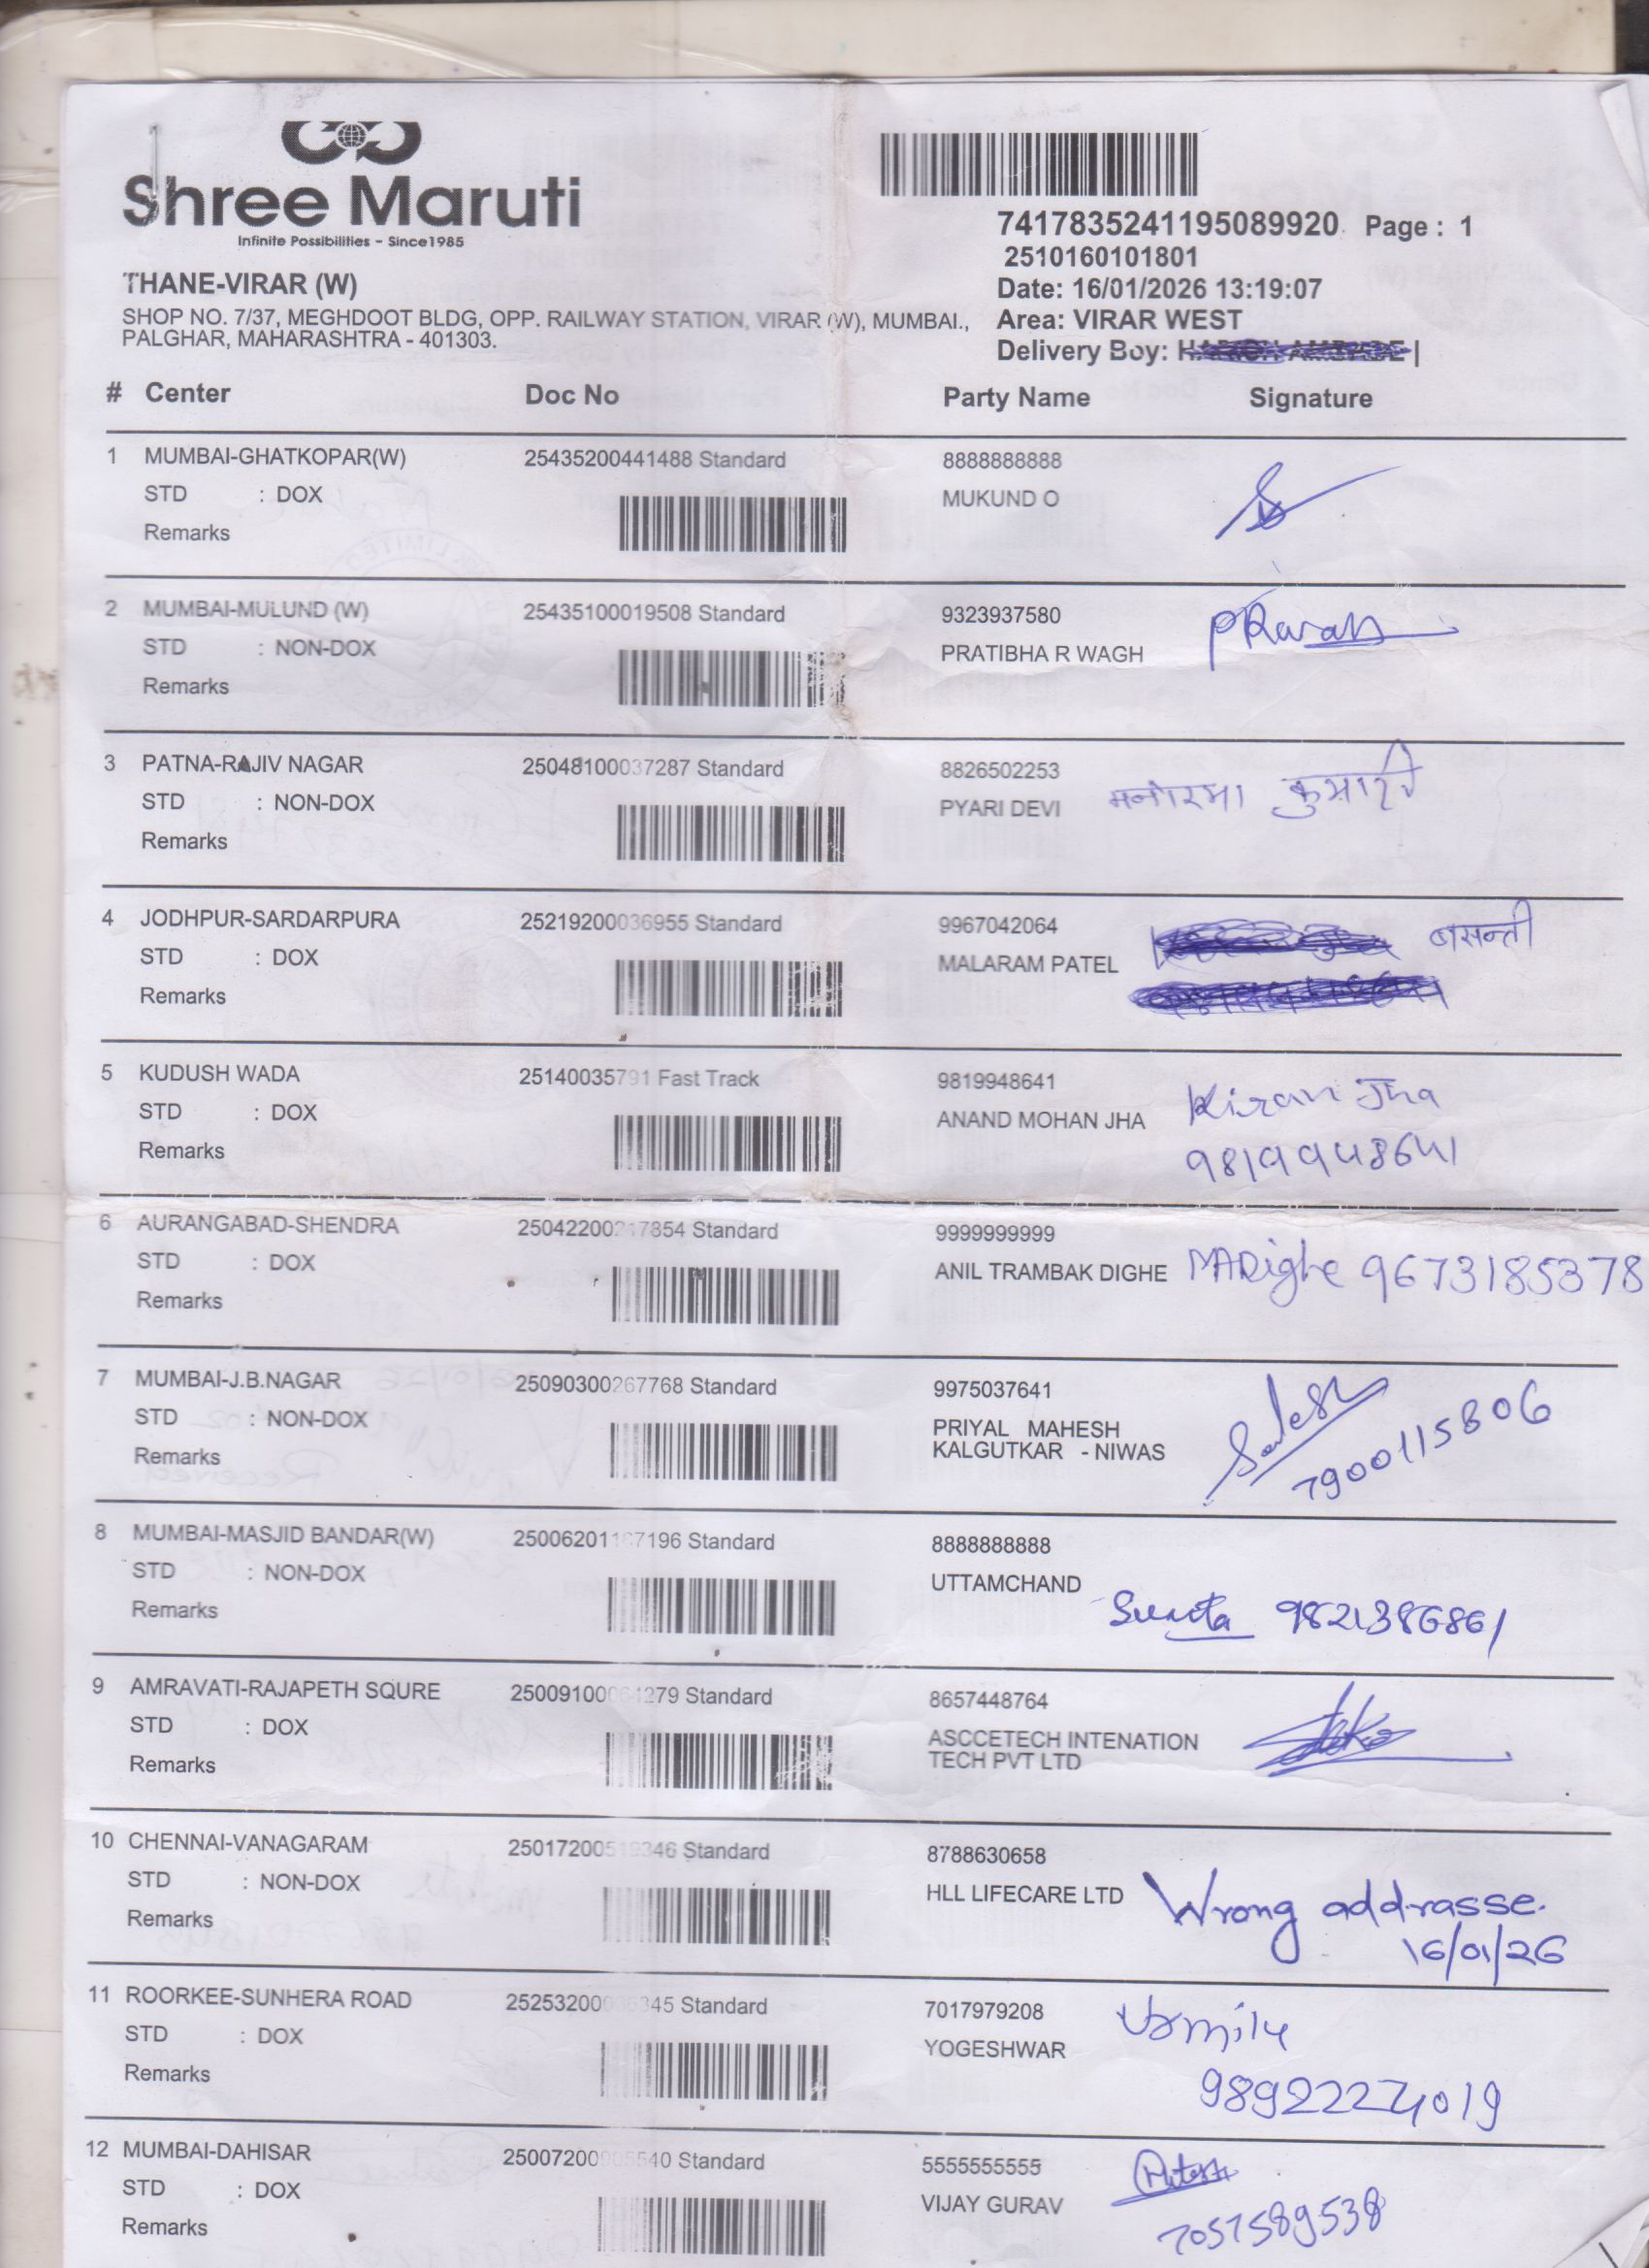 Shree Maruti
Infinite Possibilities - Since1985
7417835241195089920 Page : 1
2510160101801
THANE-VIRAR (W)
Date: 16/01/2026 13:19:07
SHOP NO. 7/37, MEGHDOOT BLDG, OPP. RAILWAY STATION, VIRAR (W), MUMBAI.,
Area: VIRAR WEST
PALGHAR, MAHARASHTRA - 401303.
Delivery Boy:
# Center Doc No Party Name Signature
1 MUMBAI-GHATKOPAR(W) 25435200441488 Standard 8888888888
STD : DOX MUKUND O
Remarks
2 MUMBAI-MULUND (W) 25435100019508 Standard 9323937580
STD : NON-DOX PRATIBHA R WAGH
Remarks
3 PATNA-RAJIV NAGAR 25048100037287 Standard 8826502253
STD : NON-DOX PYARI DEVI मनोरमा कुमारी
Remarks
4 JODHPUR-SARDARPURA 25219200036955 Standard 9967042064 बासन्ती
STD : DOX MALARAM PATEL
Remarks
5 KUDUSH WADA 25140035791 Fast Track 9819948641
STD : DOX ANAND MOHAN JHA Kiran Jha
Remarks 9819948641
6 AURANGABAD-SHENDRA Standard 9999999999
STD : DOX ANIL TRAMBAK DIGHE MADighe 9673185378
Remarks
7 MUMBAI-J.B.NAGAR 25090300267768 Standard 9975037641
STD : NON-DOX PRIYAL MAHESH
KALGUTKAR - NIWAS
Remarks 7900115806
8 MUMBAI-MASJID BANDAR(W) Standard 8888888888
STD : NON-DOX UTTAMCHAND
Remarks Sunita 9821386861
9 AMRAVATI-RAJAPETH SQURE Standard 8657448764
STD : DOX ASCCETECH INTENATION
TECH PVT LTD
Remarks
10 CHENNAI-VANAGARAM Standard 8788630658
STD : NON-DOX HLL LIFECARE LTD Wrong addrasse.
Remarks 16/01/26
11 ROORKEE-SUNHERA ROAD Standard 7017979208
STD : DOX YOGESHWAR
Remarks 9892224019
12 MUMBAI-DAHISAR Standard 5555555555
STD : DOX VIJAY GURAV
Remarks 7057589538